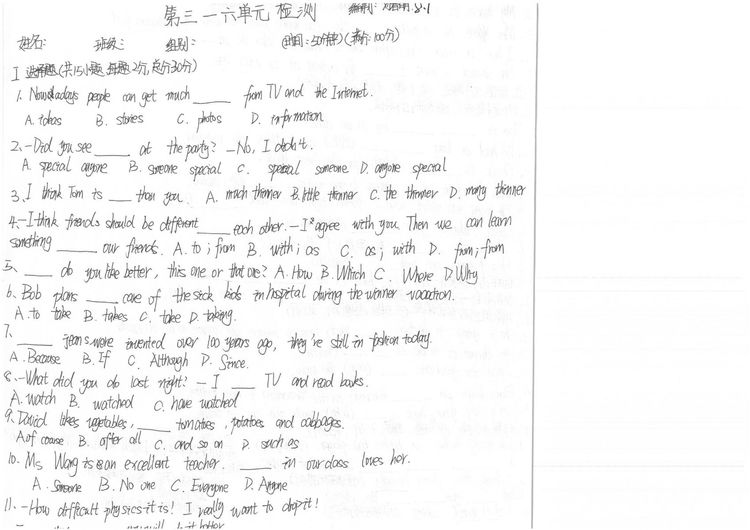 第三一六单元 检测 8.1
姓名: 班级: 组别: (时间:50分钟)(满分:100分)
I 选择题(共15小题,每题2分,总分30分)
1. Nowadays people can get much ____ from TV and the Internet.
A. ideas B. stories C. photos D. information
2. -Did you see ____ at the party? -No, I didn't.
A. special anyone B. someone special C. special someone D. anyone special
3. I think Tom is ____ than you. A. much thinner B. little thinner C. the thinner D. many thinner
4. -I think friends should be different ____ each other. -I agree with you. Then we can learn
something ____ our friends. A. to ; from B. with ; as C. as ; with D. from ; from
5. ____ do you like better, this one or that one? A. How B. Which C. Where D. Why
6. Bob plans ____ care of the sick kids in hospital during the winner vacation.
A. to take B. takes C. take D. taking.
7. ____ jeans were invented over 100 years ago, they're still in fashion today.
A. Because B. If C. Although D. Since.
8. -What did you do last night? - I ____ TV and read books.
A. watch B. watched C. have watched
9. David likes vegetables, ____ tomatoes, potatoes and cabbages.
A. of course B. after all C. and so on D. such as
10. Ms Wang is an excellent teacher. ____ in our class loves her.
A. Someone B. No one C. Everyone D. Anyone
11. -How difficult physics it is! I really want to drop it!